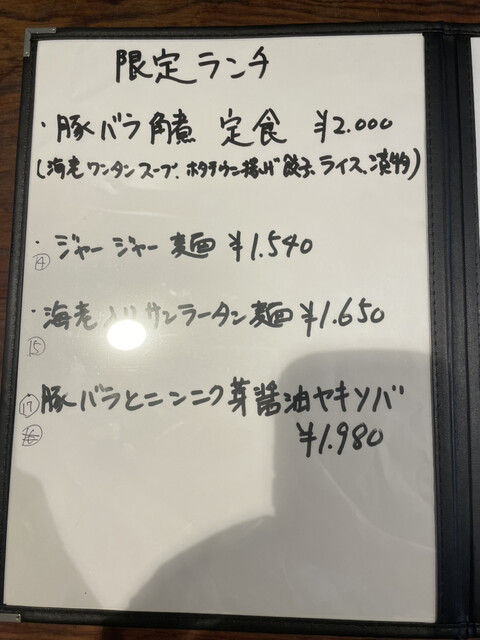 限定ランチ
・豚バラ角煮 定食 ¥2.000
(海老ワンタンスープ、ホタテウニ揚げ餃子、ライス、漬物)
・ジャージャー麺 ¥1.540
14
・海老入りサンラータン麺 ¥1.650
15
・豚バラとニンニク芽醤油ヤキソバ
17
¥1.980